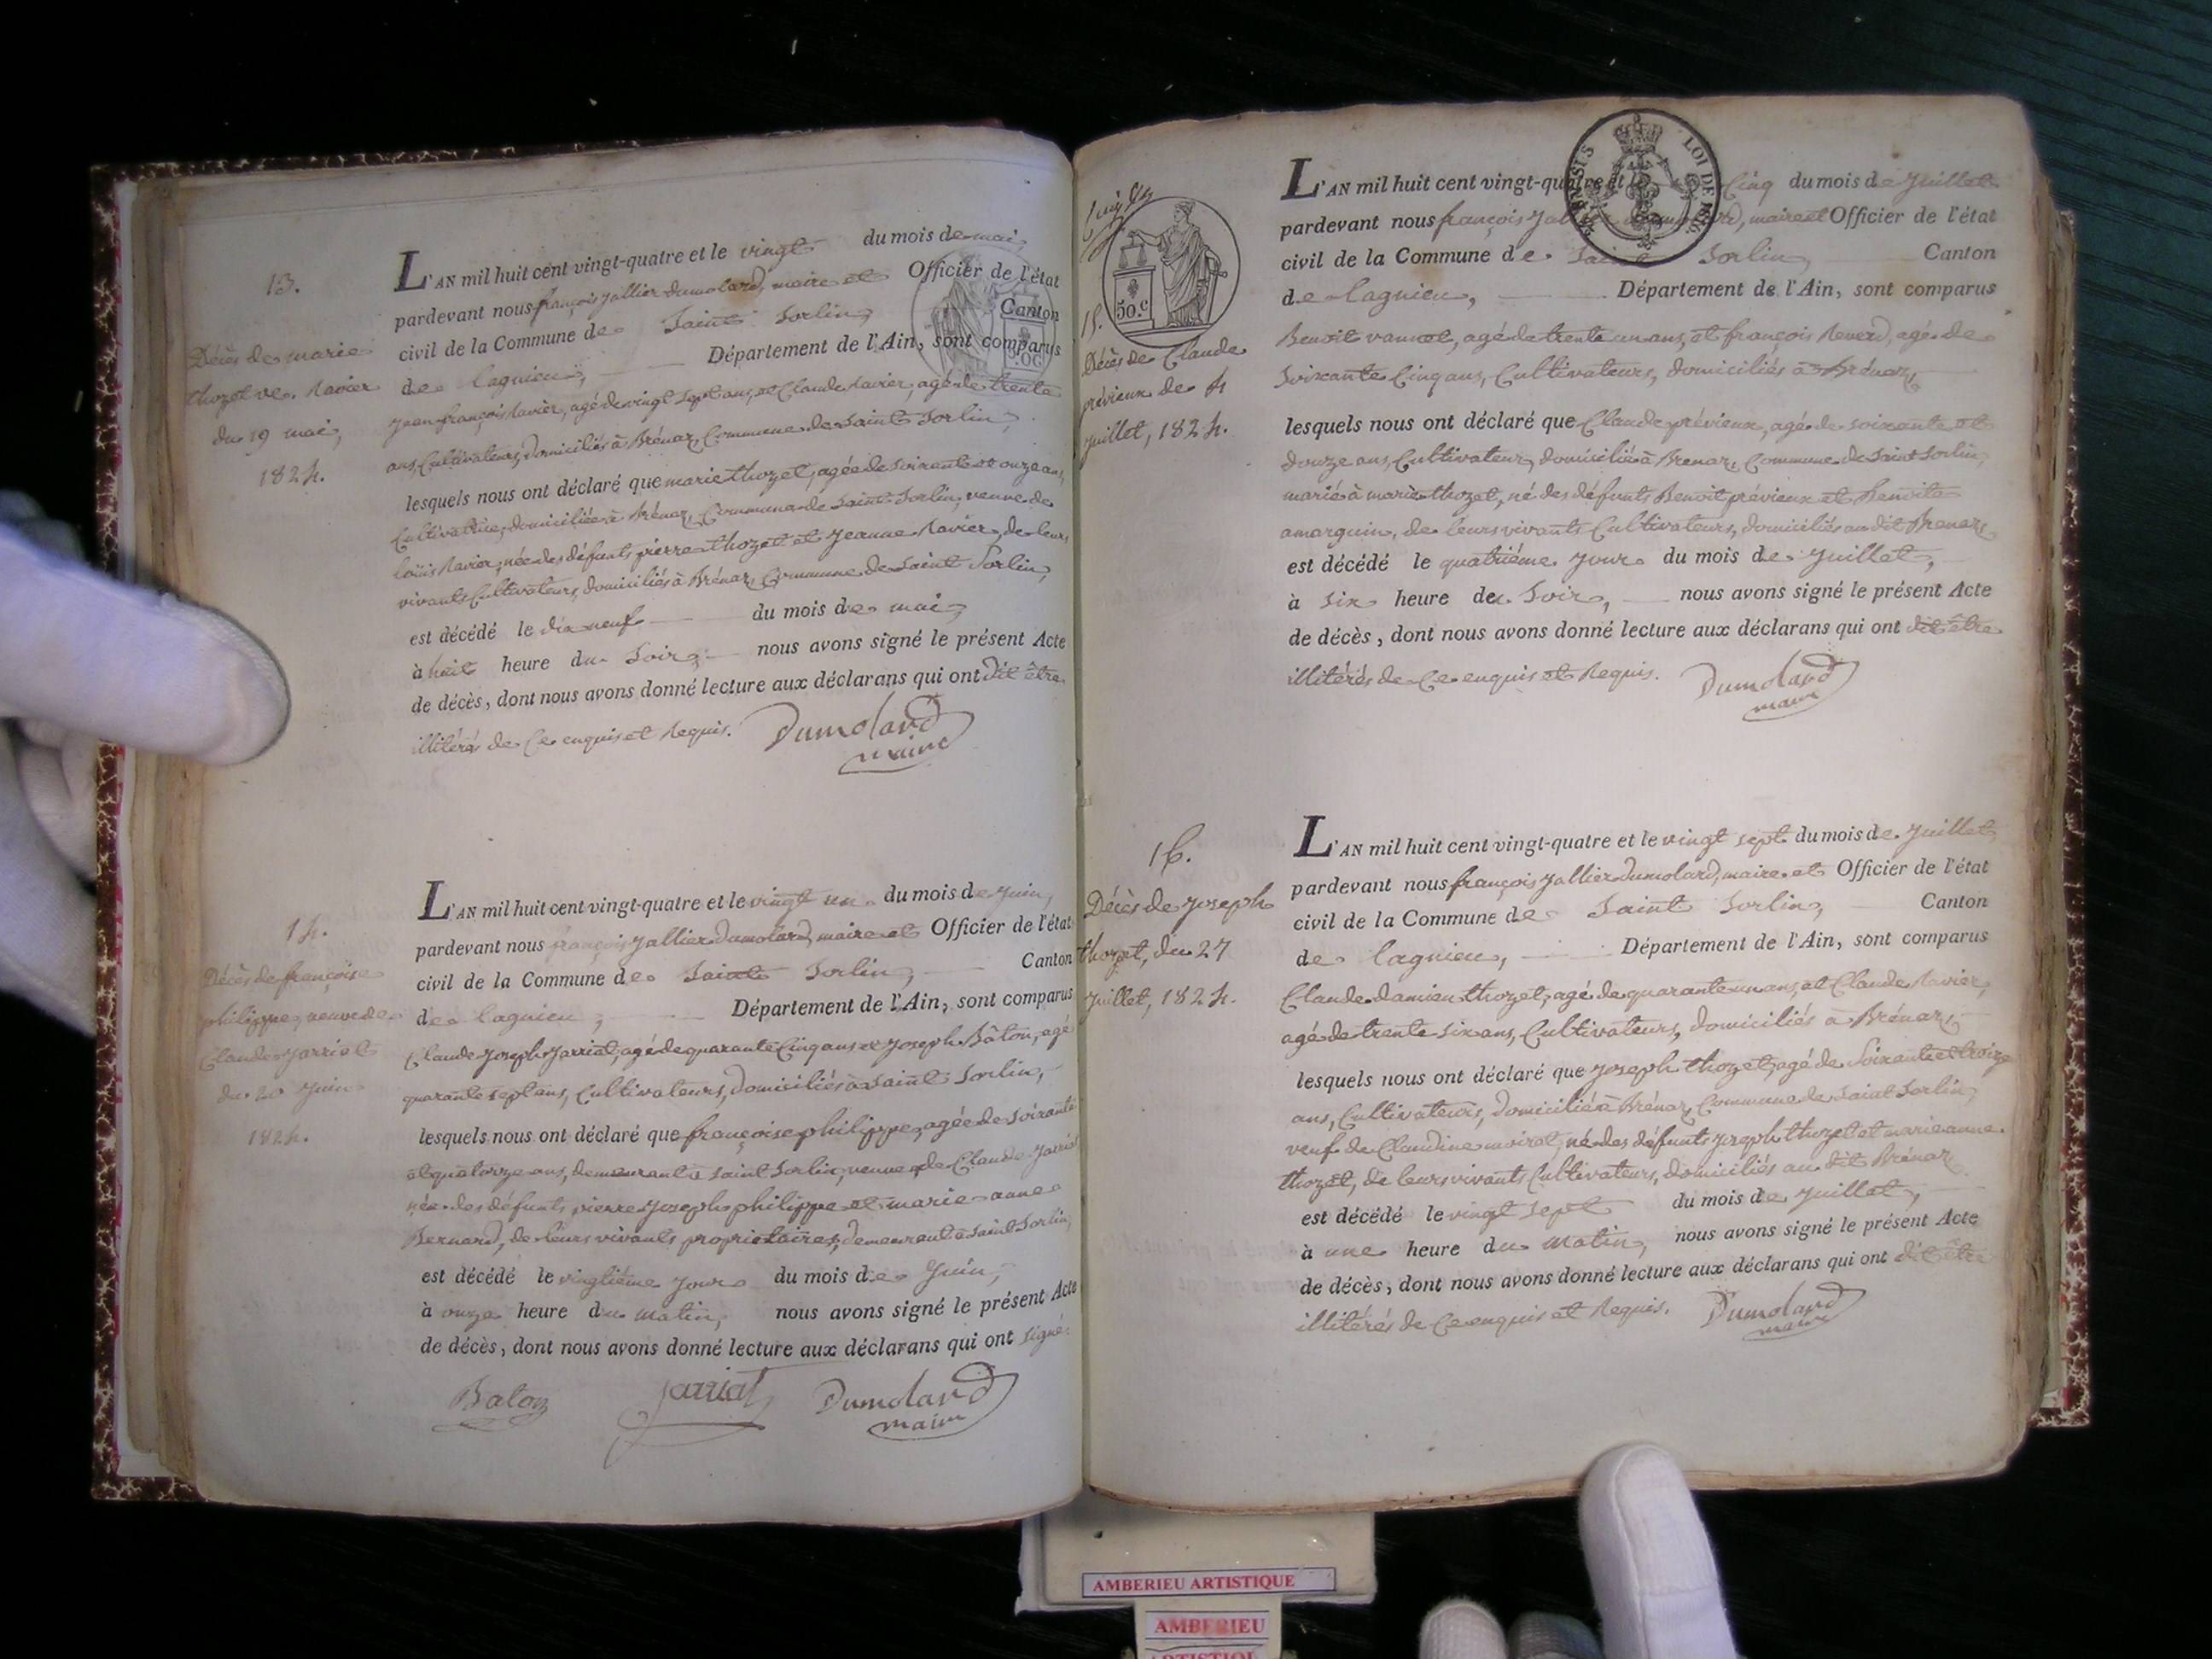 13.
Décès de marie
thozet ve. Ravier
du 19 mai,
1824.
L'AN mil huit cent vingt-quatre et le vingt du mois de mai,
pardevant nous françois Jallier Dumolard, maire et Officier de l'état
civil de la Commune de Saint Sorlin, Canton
de lagnieu, Département de l'Ain, sont comparus
jean françois Ravier, agé de vingt sept ans, et Claude Ravier, agé de trente
ans, Cultivateurs, domiciliés à Brénaz, Commune de Saint Sorlin,
lesquels nous ont déclaré que marie thozet, agée de soixante et onze ans,
Cultivatrice, domiciliée à Brénaz, Commune de Saint Sorlin, veuve de
loüis Ravier, née des défunts pierre thozet et Jeanne Ravier, de leurs
vivants Cultivateurs, domiciliés à Brénaz, Commune de Saint Sorlin,
est décédé le dix neuf du mois de mai,
à huit heure du Soir, nous avons signé le présent Acte
de décès, dont nous avons donné lecture aux déclarans qui ont dit être
illitérés de Ce enquis et Requis. Dumolard
maire
14.
Décès de françoise
philippe, veuve de
Claude Jarriat
du 20 Juin
1824.
L'AN mil huit cent vingt-quatre et le vingt un du mois de Juin,
pardevant nous françois Jallier Dumolard, maire et Officier de l'état
civil de la Commune de Saint Sorlin, Canton
de lagnieu, Département de l'Ain, sont comparus
Claude Joseph Jarriat, agé de quarante Cinq ans et Joseph Bâton, agé
quarante sept ans, Cultivateurs, domiciliés à Saint Sorlin,
lesquels nous ont déclaré que françoise philippe, agée de soixante
et quatorze ans, demeurant à Saint Sorlin, veuve de Claude Jarriat
née des défunts pierre Joseph philippe et marie anne
Bernard, de leurs vivants proprietaires, demeurant à Saint Sorlin,
est décédé le vingtième jour du mois de Juin,
à onze heure du matin, nous avons signé le présent Acte
de décès, dont nous avons donné lecture aux déclarans qui ont signé.
Baton Jarriat Dumolard
maire
50.C
15.
Décès de Claude
prévieux de 4
juillet, 1824.
LOI DE 1816
L'AN mil huit cent vingt-quatre et le Cinq du mois de Juillet
pardevant nous françois Jallier Dumolard, maire et Officier de l'état
civil de la Commune de Saint Sorlin, Canton
de lagnieu, Département de l'Ain, sont comparus
Benoit, agé de trente un ans, et françois Renerd, agé de
Soixante Cinq ans, Cultivateurs, domiciliés à Brénaz,
lesquels nous ont déclaré que Claude prévieux, agé de soixante et
douze ans, Cultivateur, domicilié à Brenaz, Commune de Saint Sorlin,
marié à marie thozet, né des défunts Benoit prévieux et Benoite
amarguin, de leurs vivants Cultivateurs, domiciliés au dit Brenaz,
est décédé le quatriéme jour du mois de Juillet,
à six heure de Soir, nous avons signé le présent Acte
de décès, dont nous avons donné lecture aux déclarans qui ont dit être
illitérés de Ce enquis et Requis. Dumolard
maire
16.
Décès de Joseph
thozet, du 27
Juillet, 1824.
L'AN mil huit cent vingt-quatre et le vingt sept du mois de Juillet
pardevant nous françois Jallier Dumolard, maire et Officier de l'état
civil de la Commune de Saint Sorlin, Canton
de lagnieu, Département de l'Ain, sont comparus
Claude damien thozet, agé de quarante un ans, et Claude Ravier,
agé de trente six ans, Cultivateurs, domiciliés à Brénaz,
lesquels nous ont déclaré que Joseph thozet, agé de Soixante et treize
ans, Cultivateurs, domicilié à Brénaz, Commune de Saint Sorlin,
veuf de Claudine moirot, né des défunts Joseph thozet et marie anne
thozet, de leurs vivants Cultivateurs, domiciliés au dit Brénaz
est décédé le vingt sept du mois de Juillet,
à une heure du matin, nous avons signé le présent Acte
de décès, dont nous avons donné lecture aux déclarans qui ont dit être
illitérés de Ce enquis et Requis. Dumolard
maire
AMBERIEU ARTISTIQUE
AMBERIEU
ARTISTIQUE